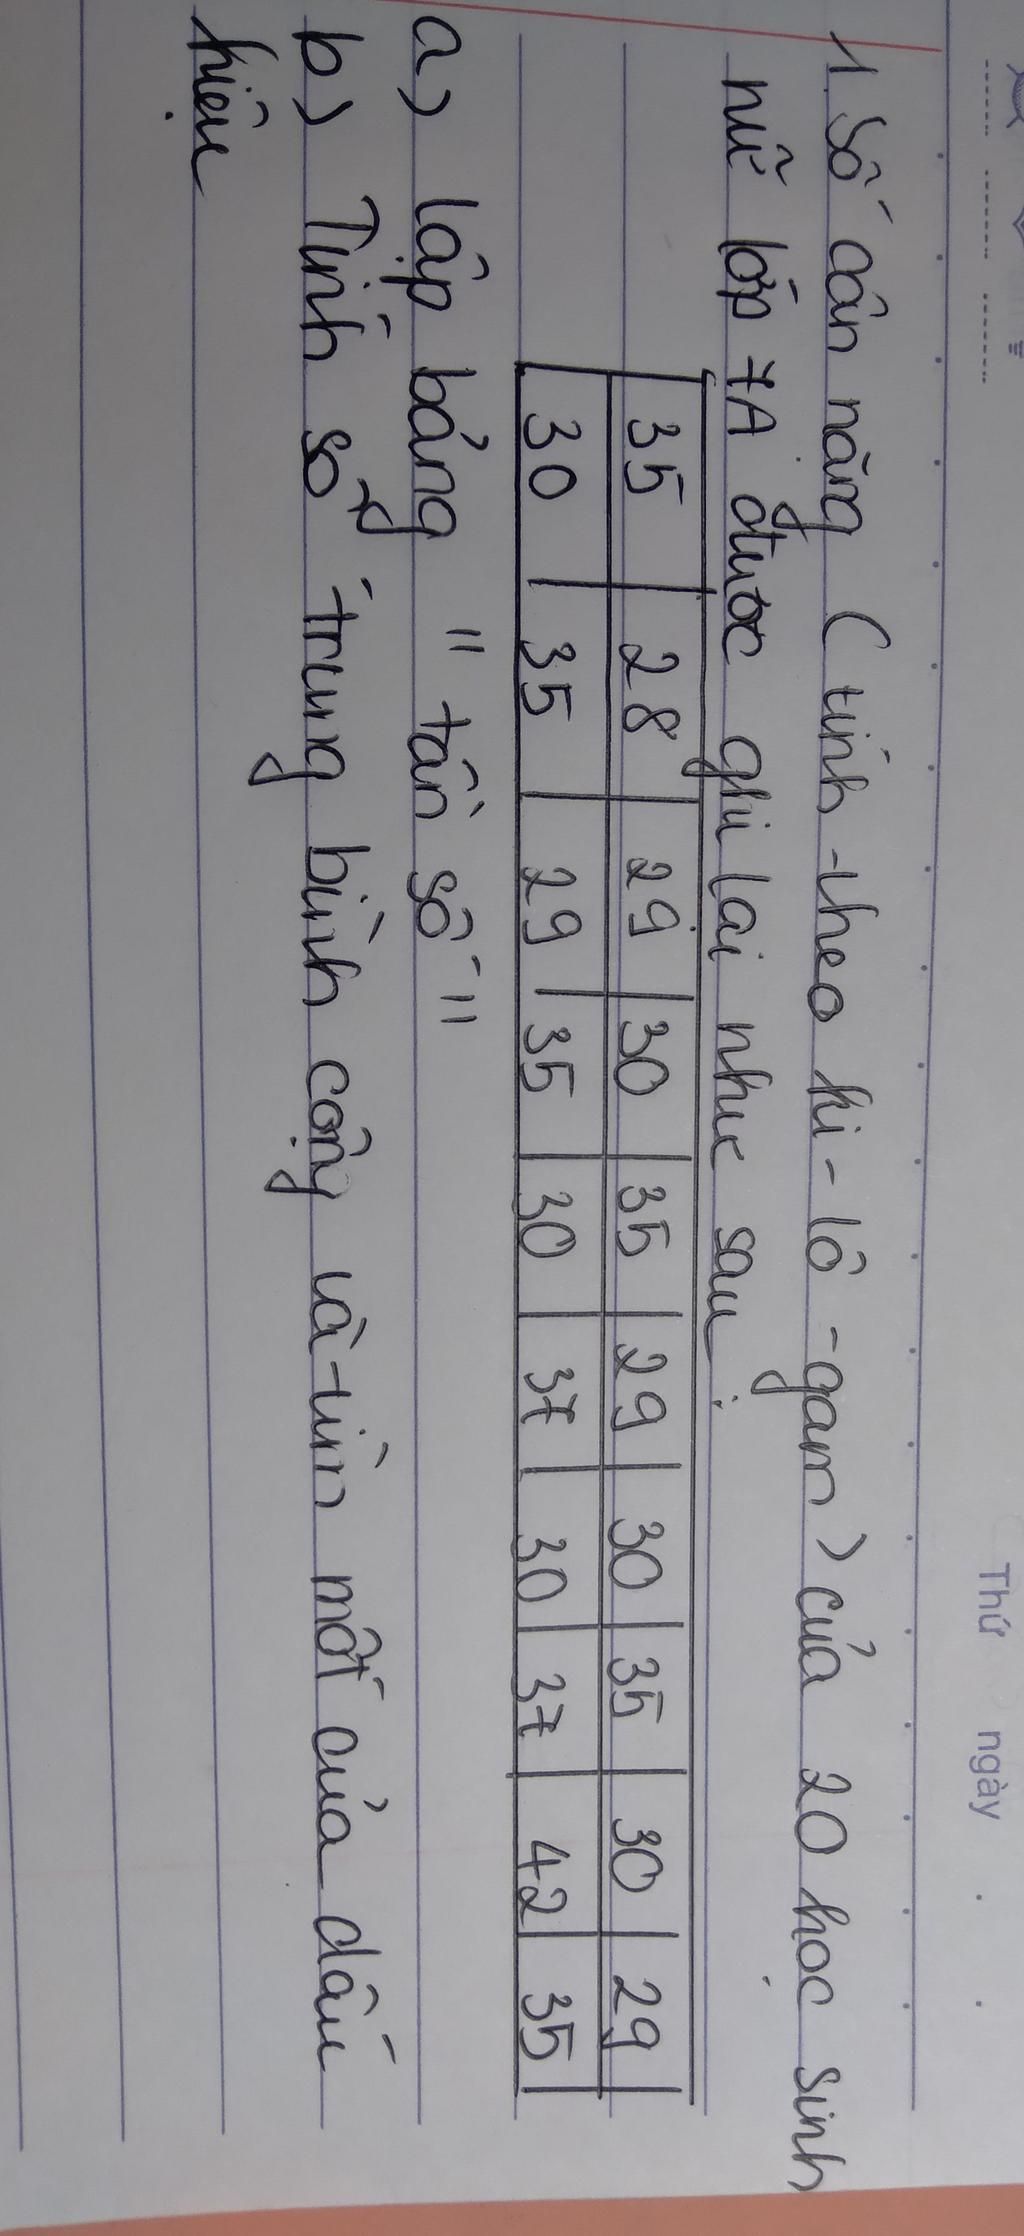 Thứ ngày
1. Số cân nặng ( tính theo ki-lô-gam) của 20 học sinh
nữ lớp 7A được ghi lại như sau:
35 28 29 30 35 29 30 35 30 29
30 35 29 35 30 37 30 37 42 35
a) lập bảng "tần số"
b) Tính số trung bình cộng và tìm mốt của dấu
hiệu